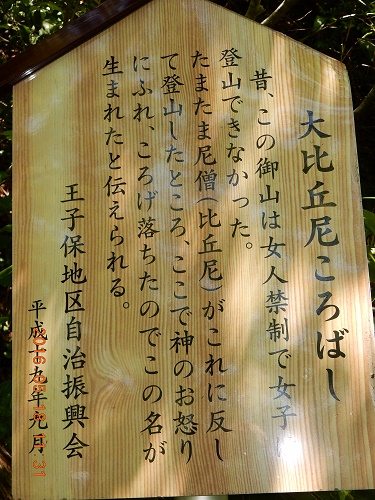 大比丘尼ころばし
昔、この御山は女人禁制で女子は
登山できなかった。
たまたま尼僧(比丘尼)がこれに反し
て登山したところ、ここで神のお怒り
にふれ、ころげ落ちたのでこの名が
生まれたと伝えられる。
王子保地区自治振興会
平成十九年元月